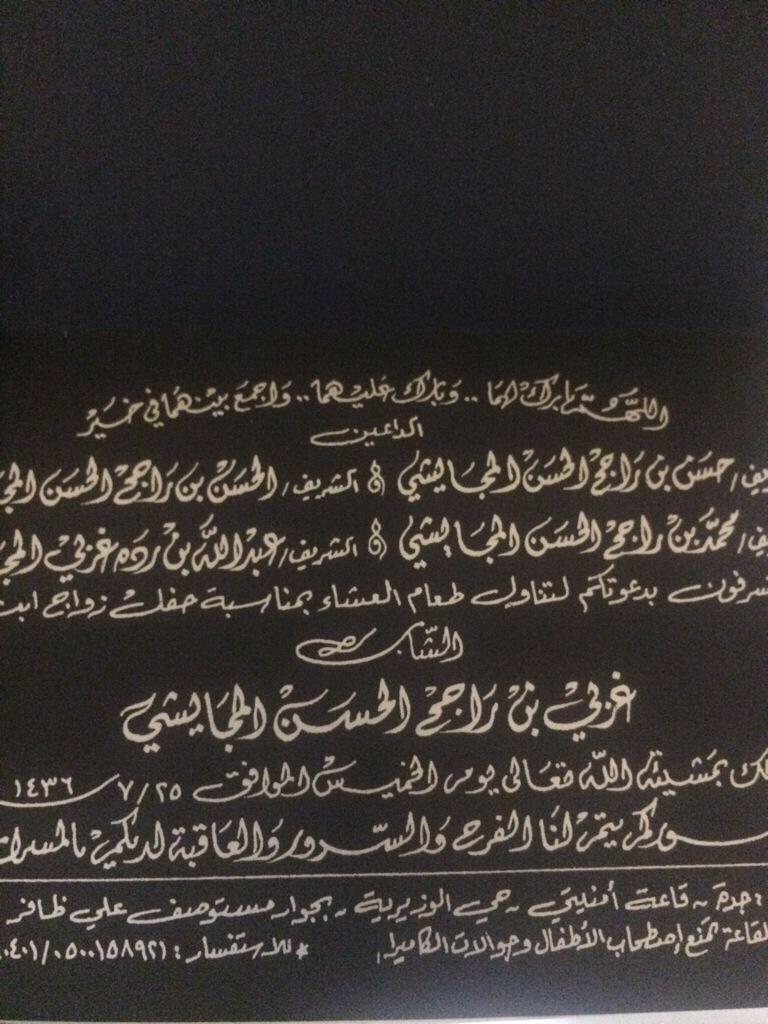 اللهم بارك لهما .. وبارك عليهما .. واجمع بينهما في خير
الداعين
حسن بن راجح الحسن المجايشي & الشريف / الحسن بن راجح الحسن
محمد بن راجح الحسن المجايشي & الشريف / عبدالله بن رده غزلي
بدعوتكم لتناول طعام العشاء بمناسبة حفل زواج
الشاب
غزلي بن راجح الحسن المجايشي
بمشيئة الله تعالى يوم الخميس الموافق ٧/٢٥ / ١٤٣٦
يتم لنا الفرح والسرور والعاقبة لديكم بالمسرات
: جدة ~ قاعة أمنيتي ~ حي الوزيرية ~ بجوار مستوصف علي ظافر
القاعة تمنع إصطحاب الأطفال وجوالات الكاميرا * للاستفسار : ٠٥٠٠١٥٨٩٢١ /